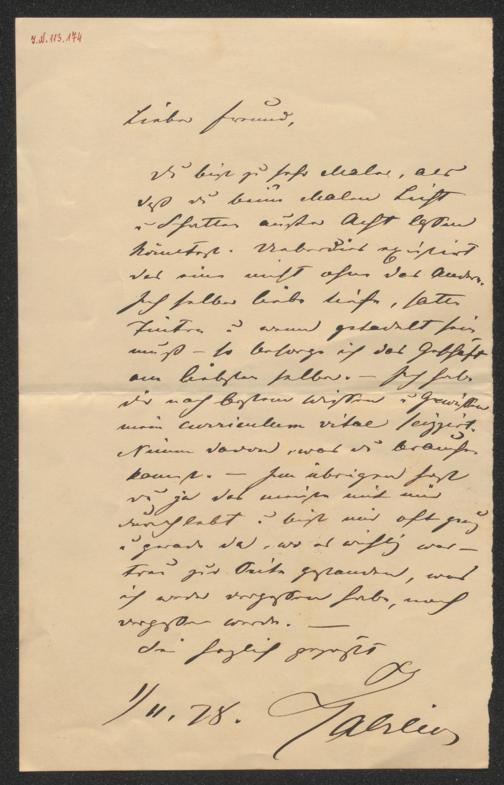 J.N. 113.174
Lieber Freund,
Du bist zu sehr Maler, als
daß du beim Malen Licht
u Schatten außer Acht lassen
könntest. Ueberdies existirt
das eine nicht ohne das Andere.
Ich selber liebe tiefe, satte
Tinten u wenn getadelt sein
muß – so besorge ich das Geschäft
am liebsten selber. – Ich habe
dir nach bestem Wissen u Gewissen
mein curriculum vitae skizzirt.
Nimm davon, was du brauchen
kannst. – Im übrigen hast
du ja das meiste mit mir
durchlebt u bist mir oft
u gerade da, wo es wichtig war –
treu zur Seite gestanden, was
ich weder vergessen habe, noch
vergessen werde. –
Sei herzlich gegrüßt
1/11. 78.